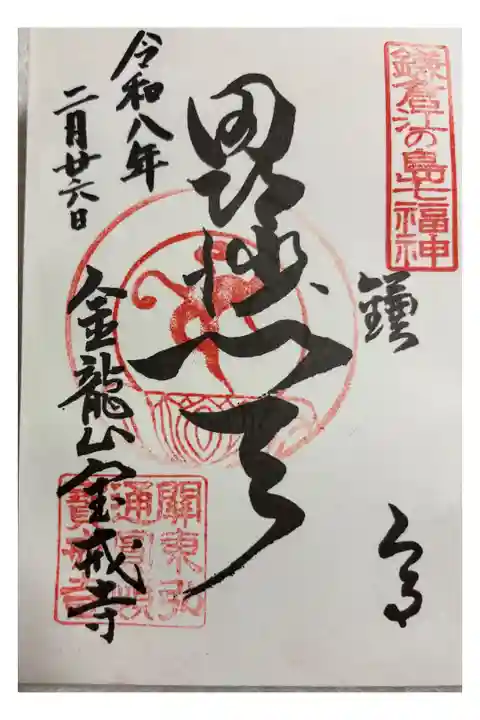 鎌倉江の島七福神
鎌倉
毘沙門天
令和八年
二月廿六日
金龍山宝戒寺
關東弘
通圓頓
寶戒寺